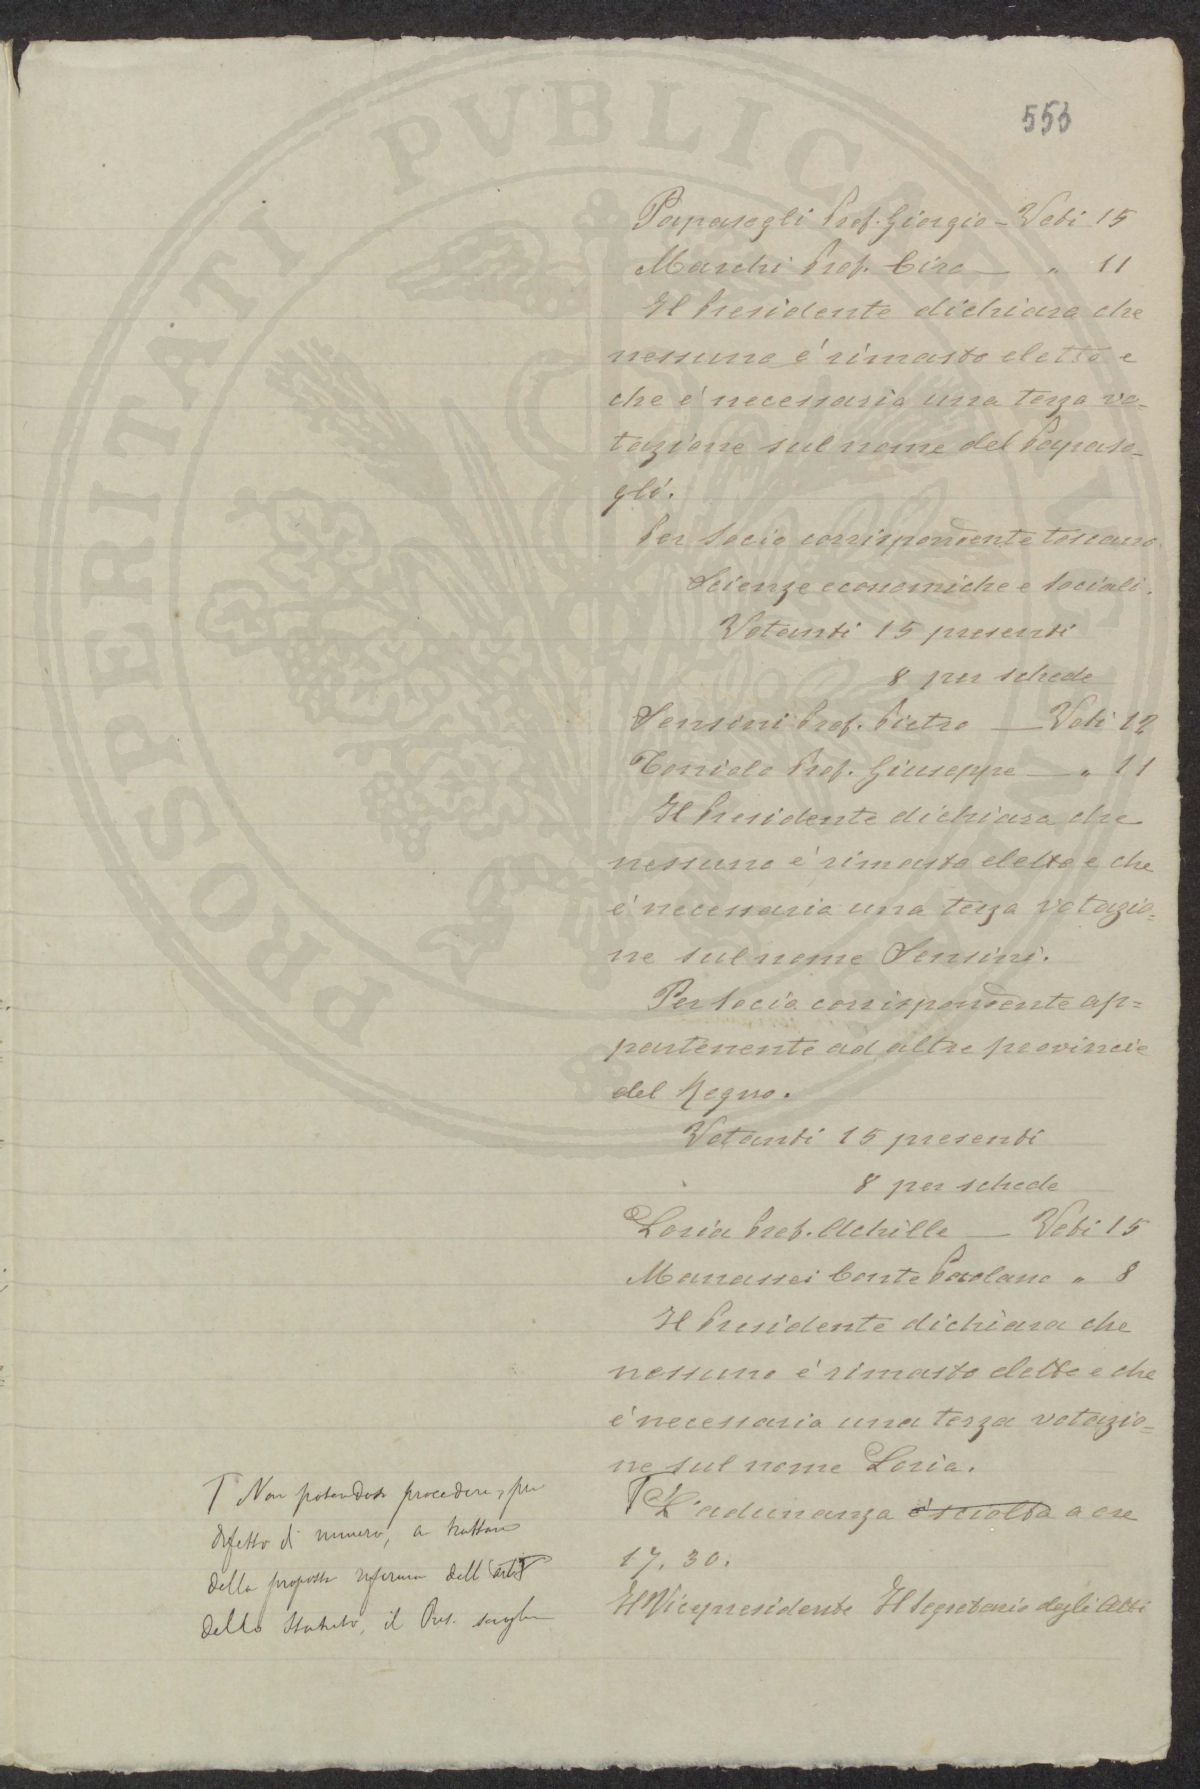 553
Papasogli Prof. Giorgio – Voti 15
Marchi Prof. Ciro — „ 11
Il Presidente dichiara che
nessuno é rimasto eletto e
che é necessaria una terza vo-
tazione sul nome del Papaso-
gli.
Per Socio corrispondente toscano
Scienze economiche e sociali.
Votanti 15 presenti
8 per schede
Sensini Prof. Pietro — Voti 12
Toniolo Prof. Giuseppe — „ 11
Il Presidente dichiara che
nessuno é rimasto eletto e che
é necessaria una terza votazio=
ne sul nome Sensini.
Per Socio corrispondente ap=
partenente ad altre provincie
del Regno.
Votanti 15 presenti
8 per schede
Loria Prof. Achille — Voti 15
Manassei Conte Paolano „ 8
Il Presidente dichiara che
nessuno é rimasto eletto e che
é necessaria una terza votazio=
ne sul nome Loria.
L'adunanza é sciolta a ore
17.30.
Il Vicepresidente Il Segretario degli Atti
T Non potendosi procedere, per
difetto di numero, a trattare
della proposta riforma dell'art.
dello Statuto, il Pres. scioglie
PROSPERITATI PVBLICAE AVGENDAE